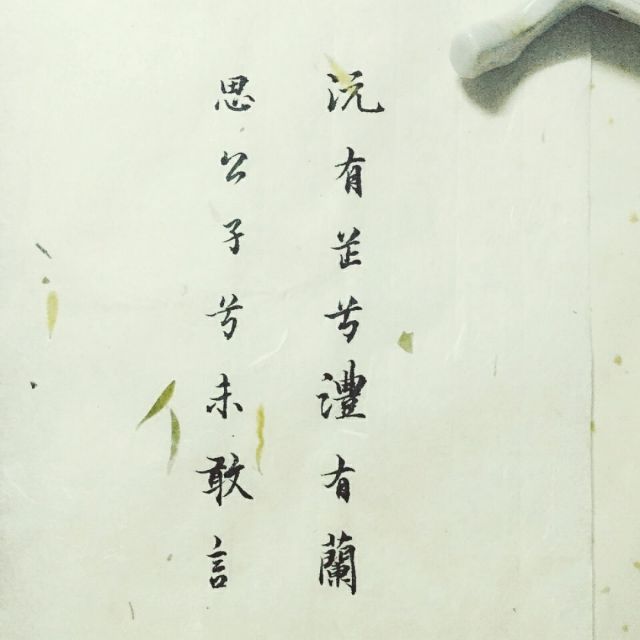 沅有芷兮澧有蘭
思公子兮未敢言